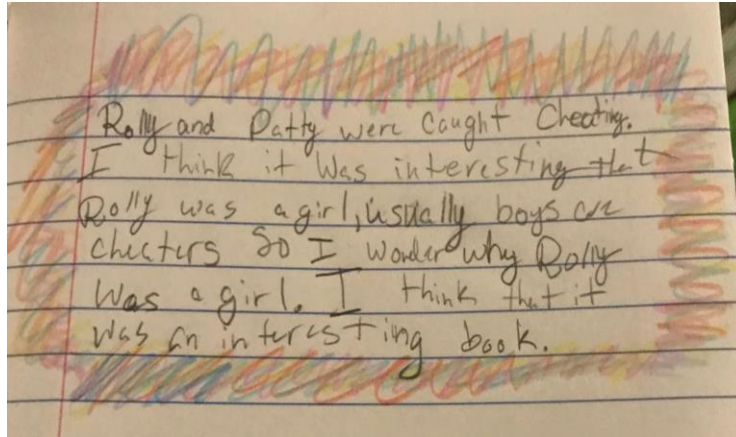 Rolly and Patty were caught Cheating.
I think it was interesting that
Rolly was a girl, usually boys are
cheaters So I wonder why Rolly
Was a girl. I think that it
was an interesting book.